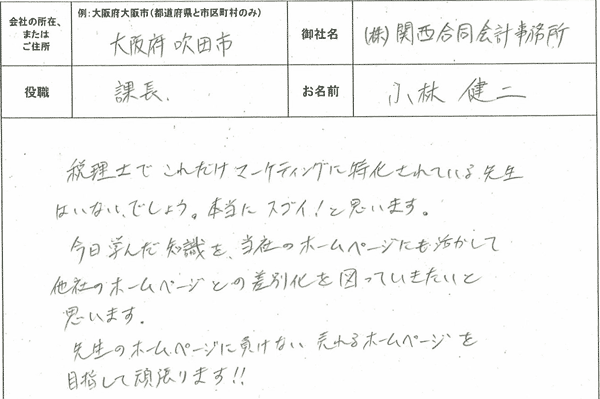 会社の所在、
または
ご住所
例:大阪府大阪市(都道府県と市区町村のみ)
大阪府吹田市
御社名
(株)関西合同会計事務所
役職
課長.
お名前
小林 健二
税理士でこれだけマーケティングに特化されている先生
はいない、でしょう。本当にスゴイ!と思います。
今日学んだ知識を、当社のホームページにも活かして
他社のホームページとの差別化を図っていきたいと
思います。
先生のホームページに負けない売れるホームページを
目指して頑張ります!!